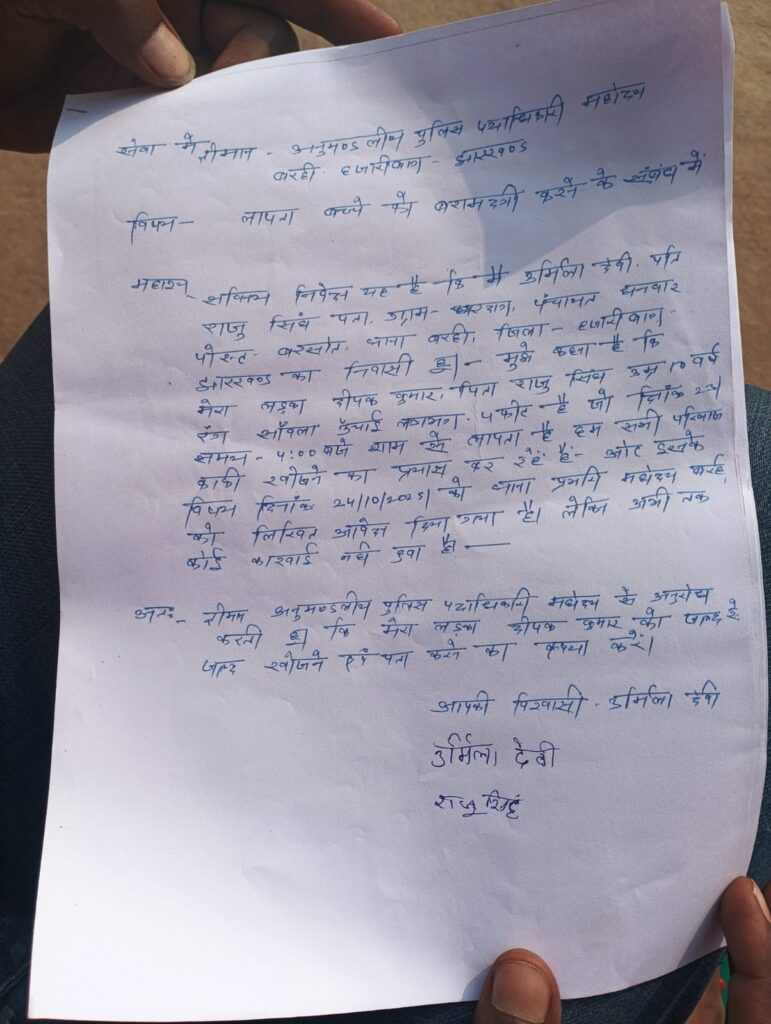 सेवा में श्रीमान - अनुमण्डलीय पुलिस पदाधिकारी महोदय
बरही. हजारीबाग - झारखण्ड
विषय - लापता बच्चे को बरामदगी करने के संबंध में
महाशय,
सविनय निवेदन यह है कि मैं उर्मिला देवी. पति
राजु सिंघ पता. ग्राम - पंचायत धनवार
पोस्ट - बरसोत. थाना बरही, जिला - हजारीबाग -
झारखण्ड का निवासी हू। - मुझे कहना है कि
मेरा लड़का दीपक कुमार, पिता राजु सिंघ उम्र 10 वर्ष
रंग साँवला ऊँचाई लगभग - 4 फीट है जो दिनांक 23।
समय - 4:00 बजे शाम से लापता है हम सभी परिवार
काफी खोजने का प्रयास कर रहें हैं - और इसके
विषय दिनांक 24/10/2025। को थाना प्रभारी महोदय बरही
को लिखित आवेदन दिया गया है। लेकिन अभी तक
कोई कारवाई नही हुवा है। —
अतः - श्रीमान अनुमण्डलीय पुलिस पदाधिकारी महोदय से अनुरोध
करती हू कि मेरा लड़का दीपक कुमार को जल्द से
जल्द खोजने एवं पता करने का कृप्या करें।
आपकी विश्वासी - उर्मिला देवी
उर्मिला देवी
राजू सिहं